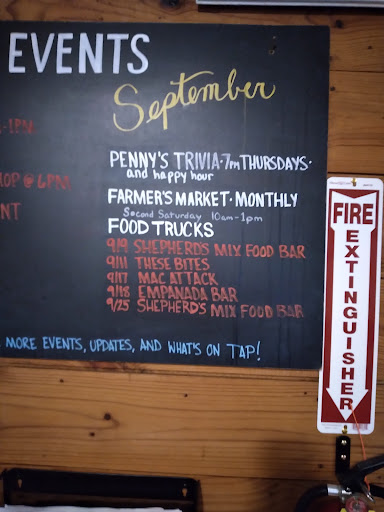 EVENTS
September
-1PM
PENNY'S TRIVIA · 7PM THURSDAYS ·
and happy hour
HOP @ 6PM
FARMER'S MARKET · MONTHLY
NT
Second Saturday 10am-1pm
FOOD TRUCKS
9/9 SHEPHERD'S MIX FOOD BAR
9/11 THESE BITES
9/17 MAC ATTACK
9/18 EMPANADA BAR
9/25 SHEPHERD'S MIX FOOD BAR
MORE EVENTS, UPDATES, AND WHAT'S ON TAP!
FIRE
EXTINGUISHER